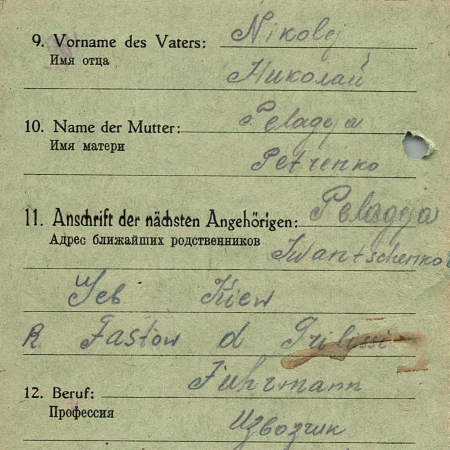 9. Vorname des Vaters: Nikolej
Имя отца
Николай
10. Name der Mutter: Pelagya
Имя матери
Petrenko
11. Anschrift der nächsten Angehörigen: Pelagya
Адрес ближайших родственников
Iwantschenko
Geb Kiew
R Fastow d Trilissi
12. Beruf: Fuhrmann
Профессия
Извозчик